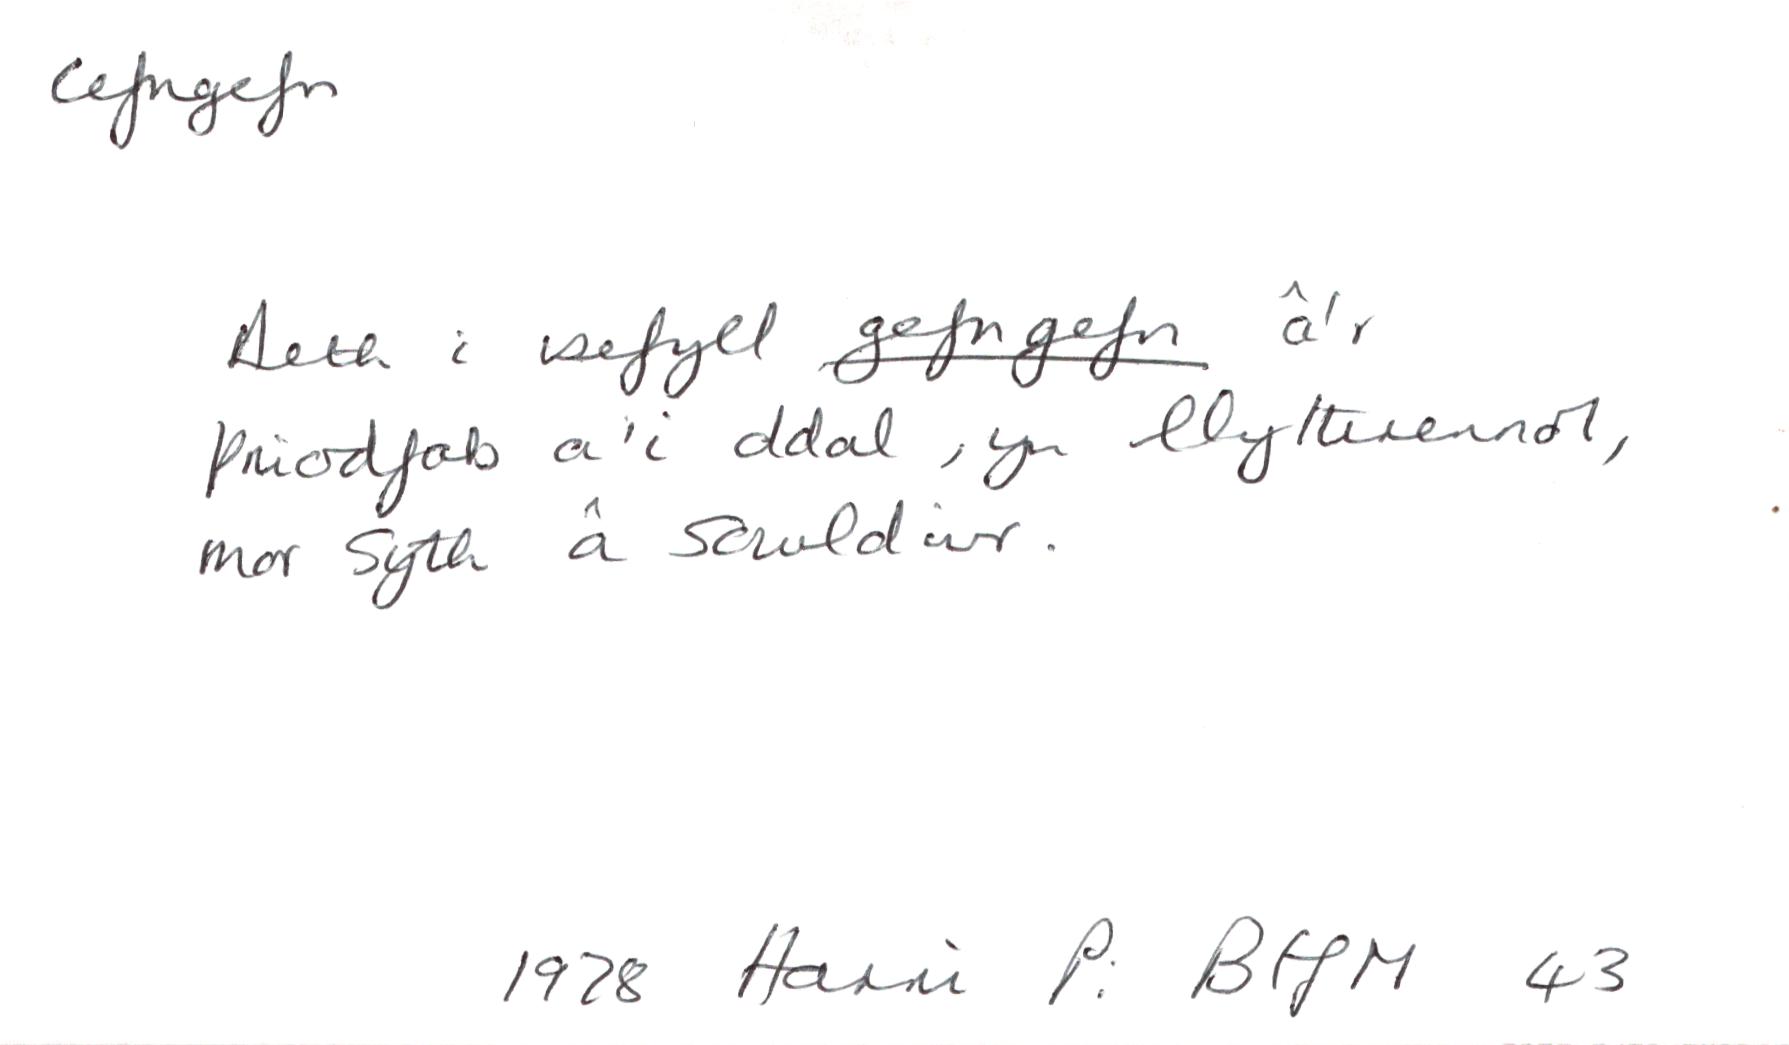 cefngefn
Aeth i sefyll gefngefn â'r
priodfab a'i ddal, yn llythrennol,
mor syth â sowldiwr.
1978 Harri P: BHFM 43